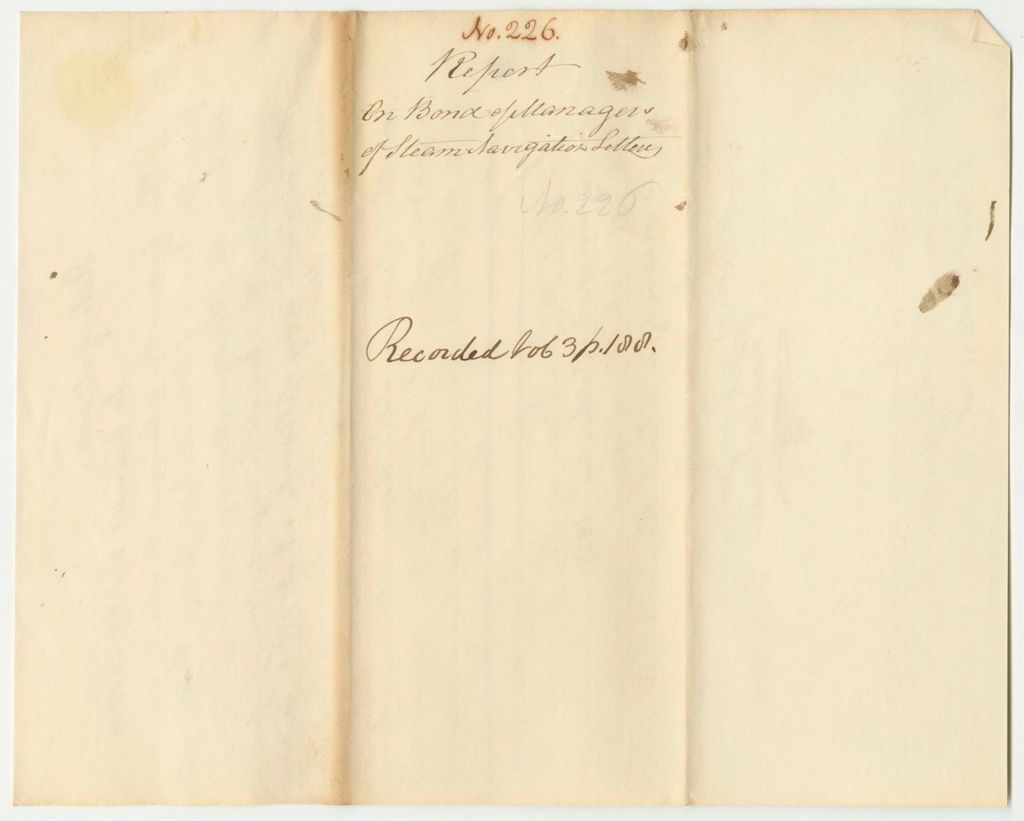 No. 226.
Report
On Bond of Managers
of Steam Navigation Lottery
No. 226
Recorded Vol 3 p. 188.